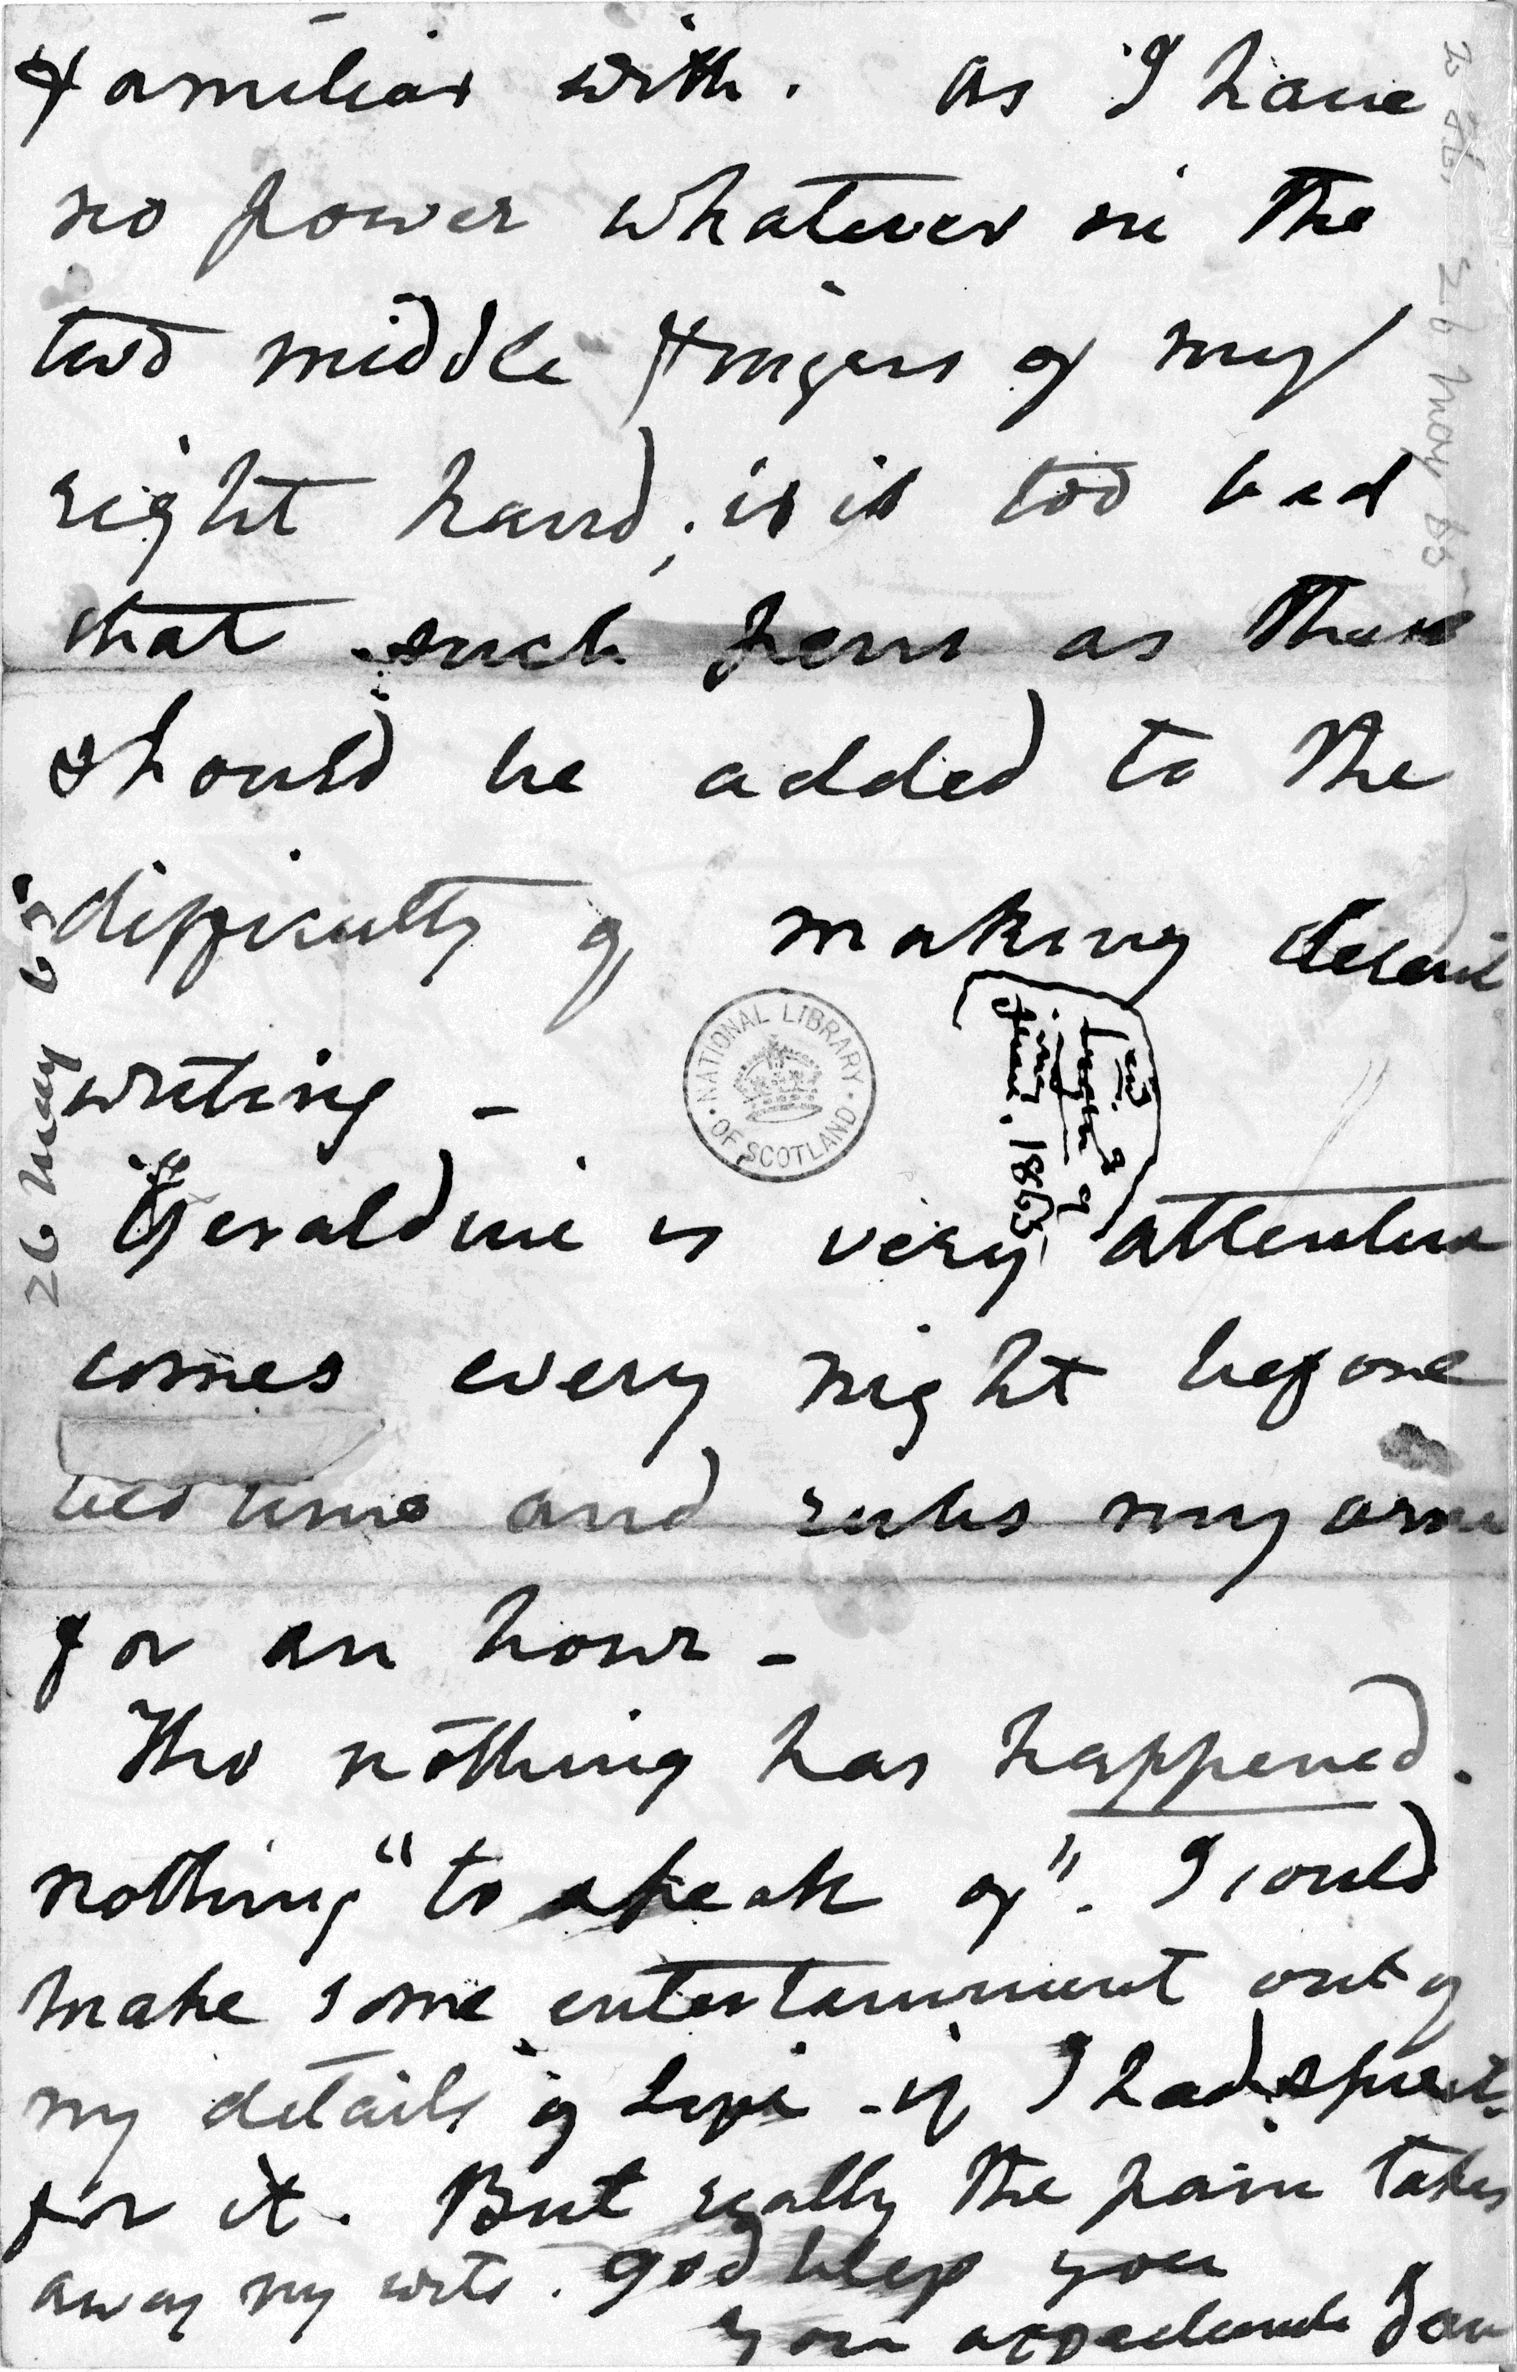 familiar with. As I have
no power whatever in the
two middle fingers of my
right hand; is it too bad
that such pens as these
should be added to the
difficulty of making decent
writing –
Geraldine is very attentive
comes every night before
bedtime and rubs my arm
for an hour –
Tho nothing has happened.
nothing "to speak of". I could
make some entertainment out of
my details of Life – if I had spirit
for it. But really the pain takes
away my wits. God bless you
Your affectionate Jane
26 May 65
26 May 65
NATIONAL LIBRARY
OF SCOTLAND
1863